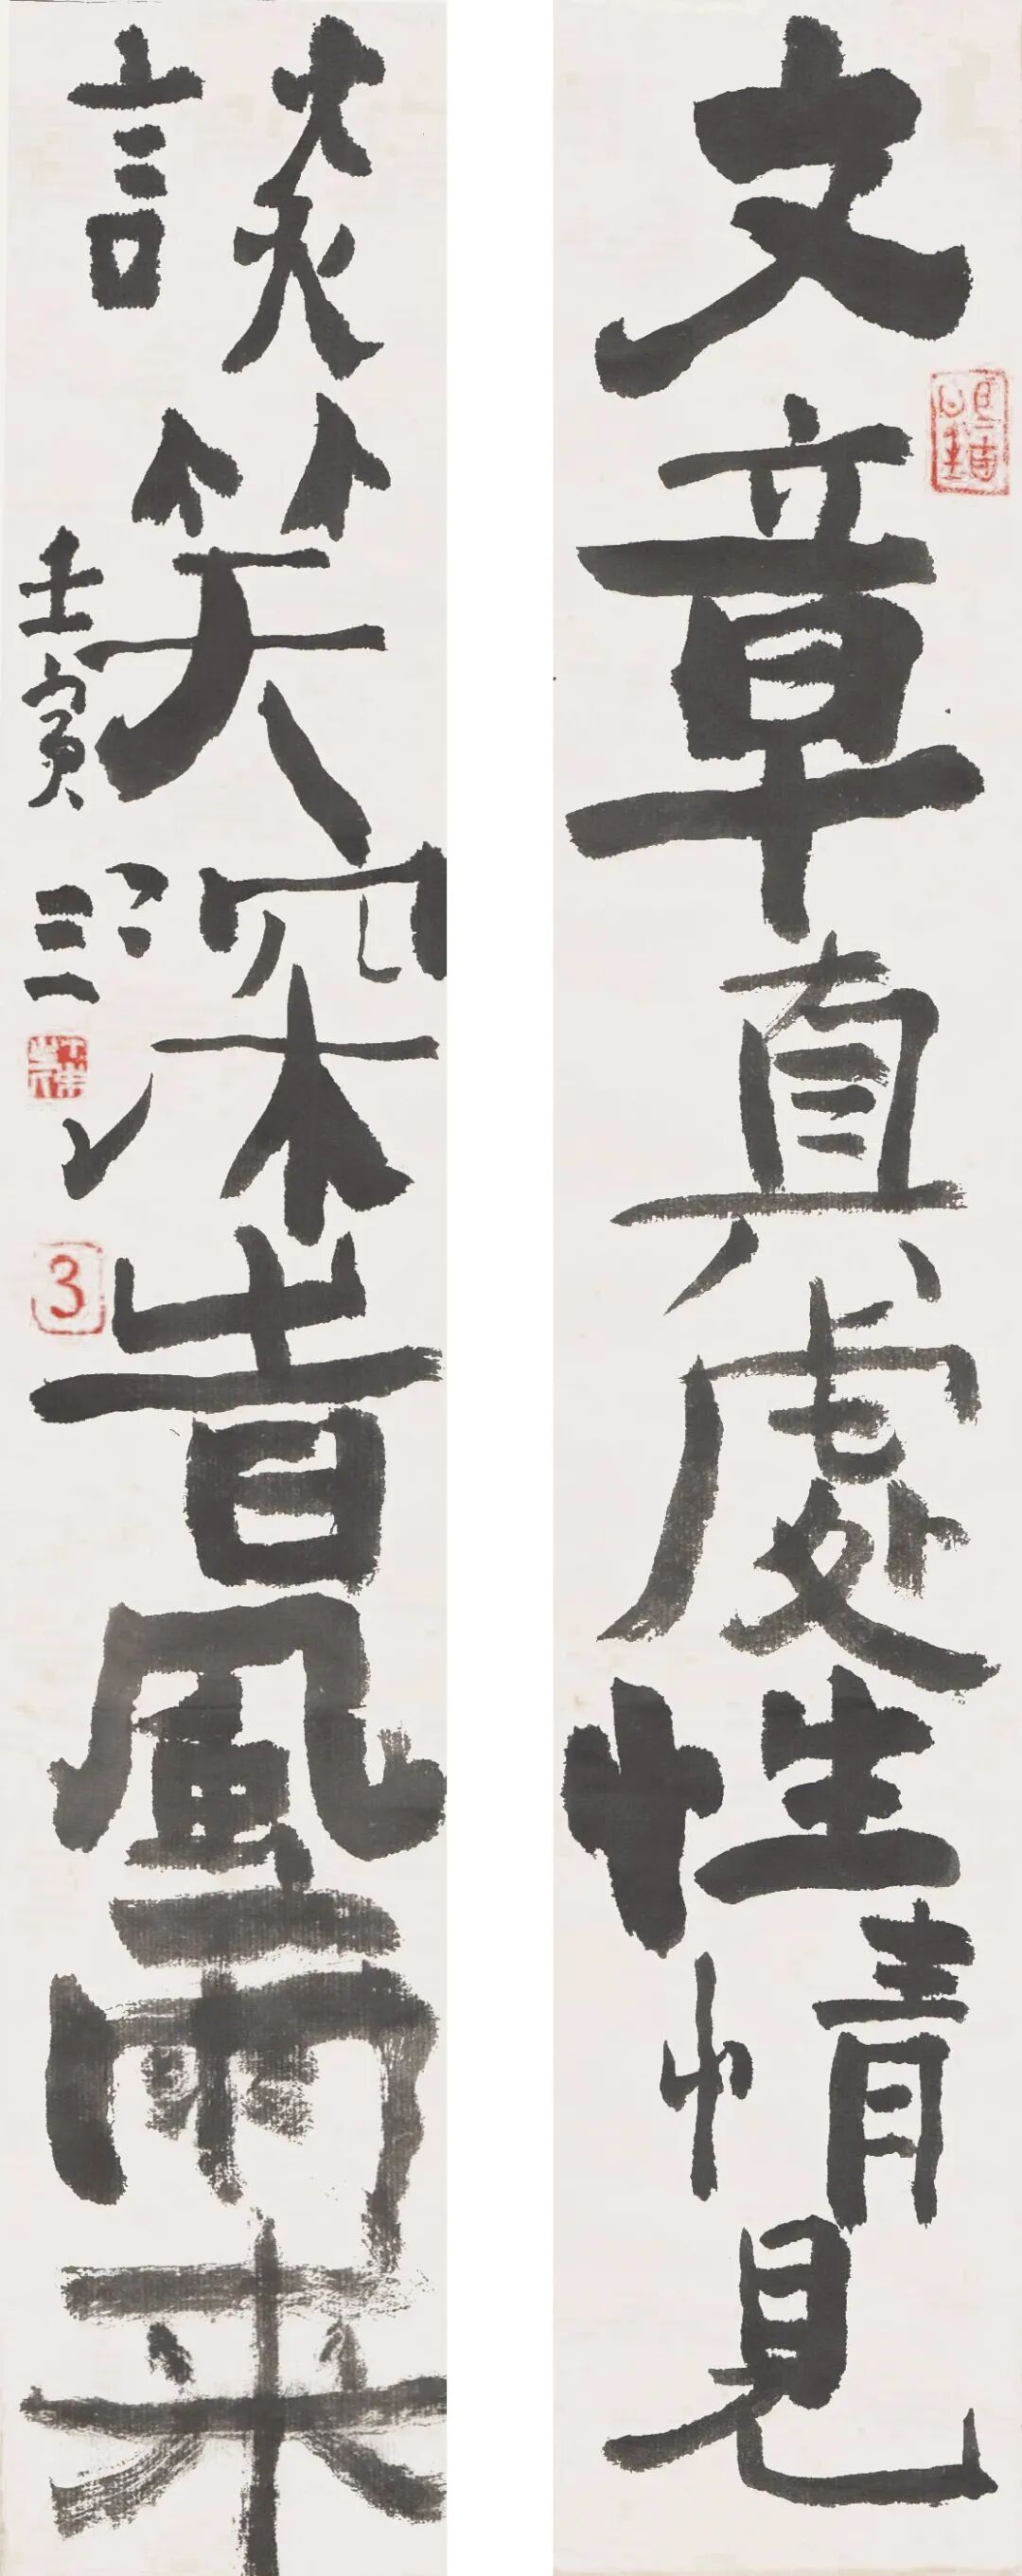 文章真處性情見
談笑深旹風雨来
壬寅 三
3